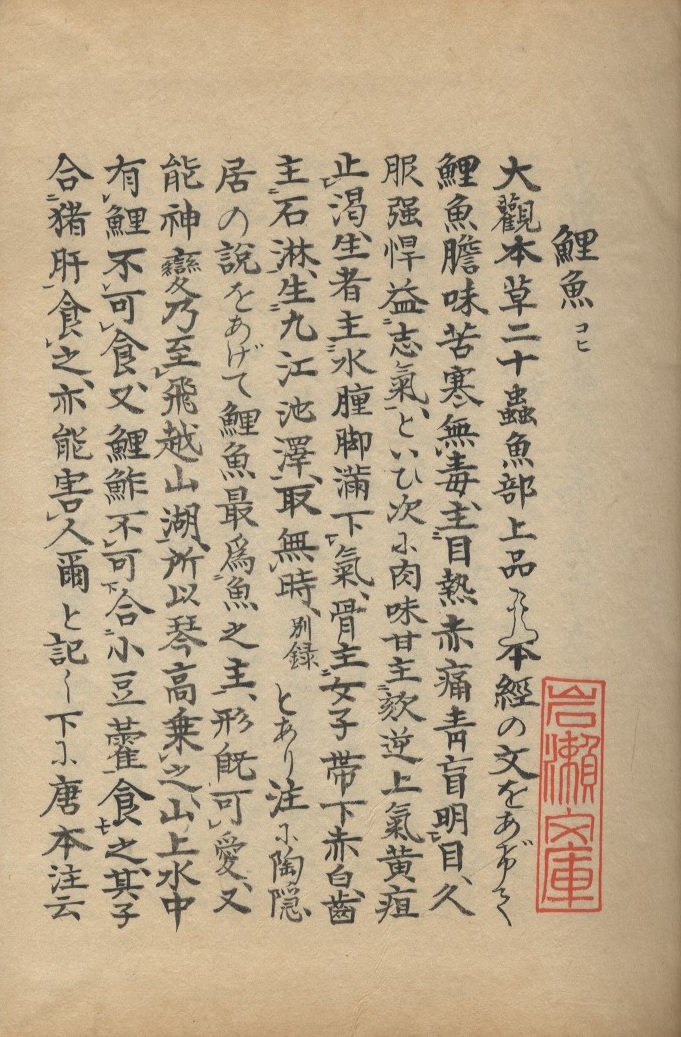 鯉魚 コヒ
大觀本草二十蟲魚部上品に本經の文をあげて
鯉魚膽味苦寒無毒主目熱赤痛靑盲明目久
服强悍益志氣といひ次に肉味甘主欬逆上氣黄疸
止渇生者主水腫脚滿下氣骨主女子帶下赤白齒
主石淋生九江池澤取無時 別録 とあり注に陶隠
居の説をあげて鯉魚最爲魚之主形旣可愛又
能神變乃至飛越山湖所以琴高乗之山上水中
有鯉不可食又鯉鮓不可合小豆藿食之其子
合猪肝食之亦能害人爾と記し下に唐本注云
岩瀬文庫